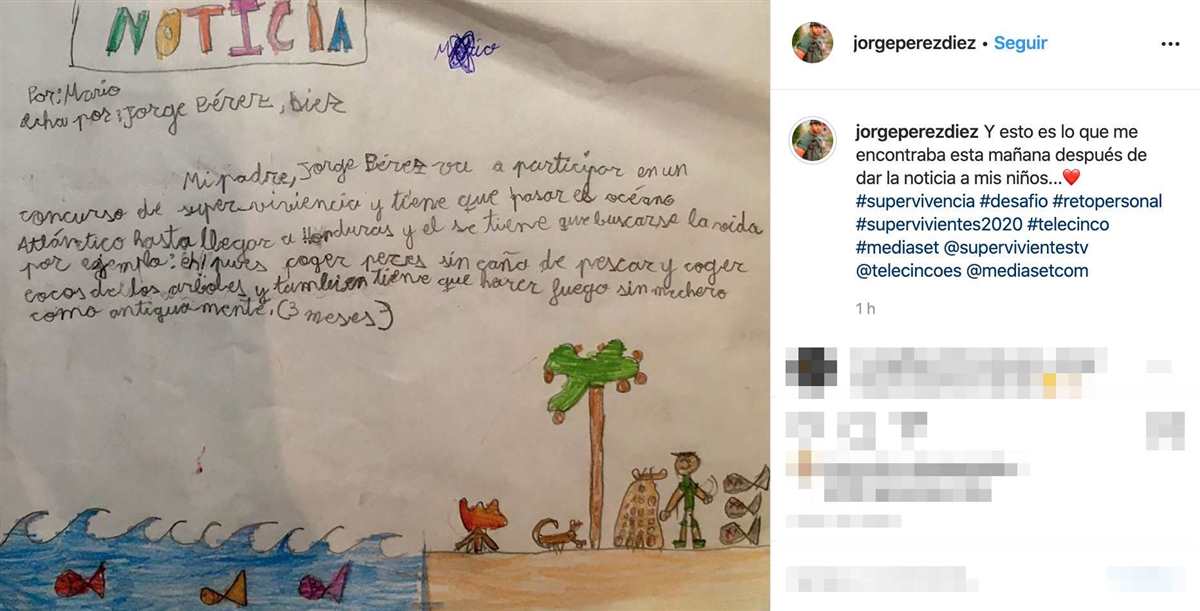 NOTICIA
Mario
Por: Mario
echa por: Jorge Bérez, Diez
Mi padre, Jorge Bérez va a participar en un
concurso de super-viviencia y tiene que pasar el océano
Atlántico hasta llegar a Honduras y el se tiene que buscarse la vida
por ejemplo: eh! pues coger peces sin caña de pescar y coger
cocos de los arboles y tambien tiene que hacer fuego sin mechero
como antigua mente. (3 meses)
jorgeperezdiez • Seguir
jorgeperezdiez Y esto es lo que me
encontraba esta mañana después de
dar la noticia a mis niños...❤️
#supervivencia #desafio #retopersonal
#supervivientes2020 #telecinco
#mediaset @supervivientestv
@telecincoes @mediasetcom
1 h